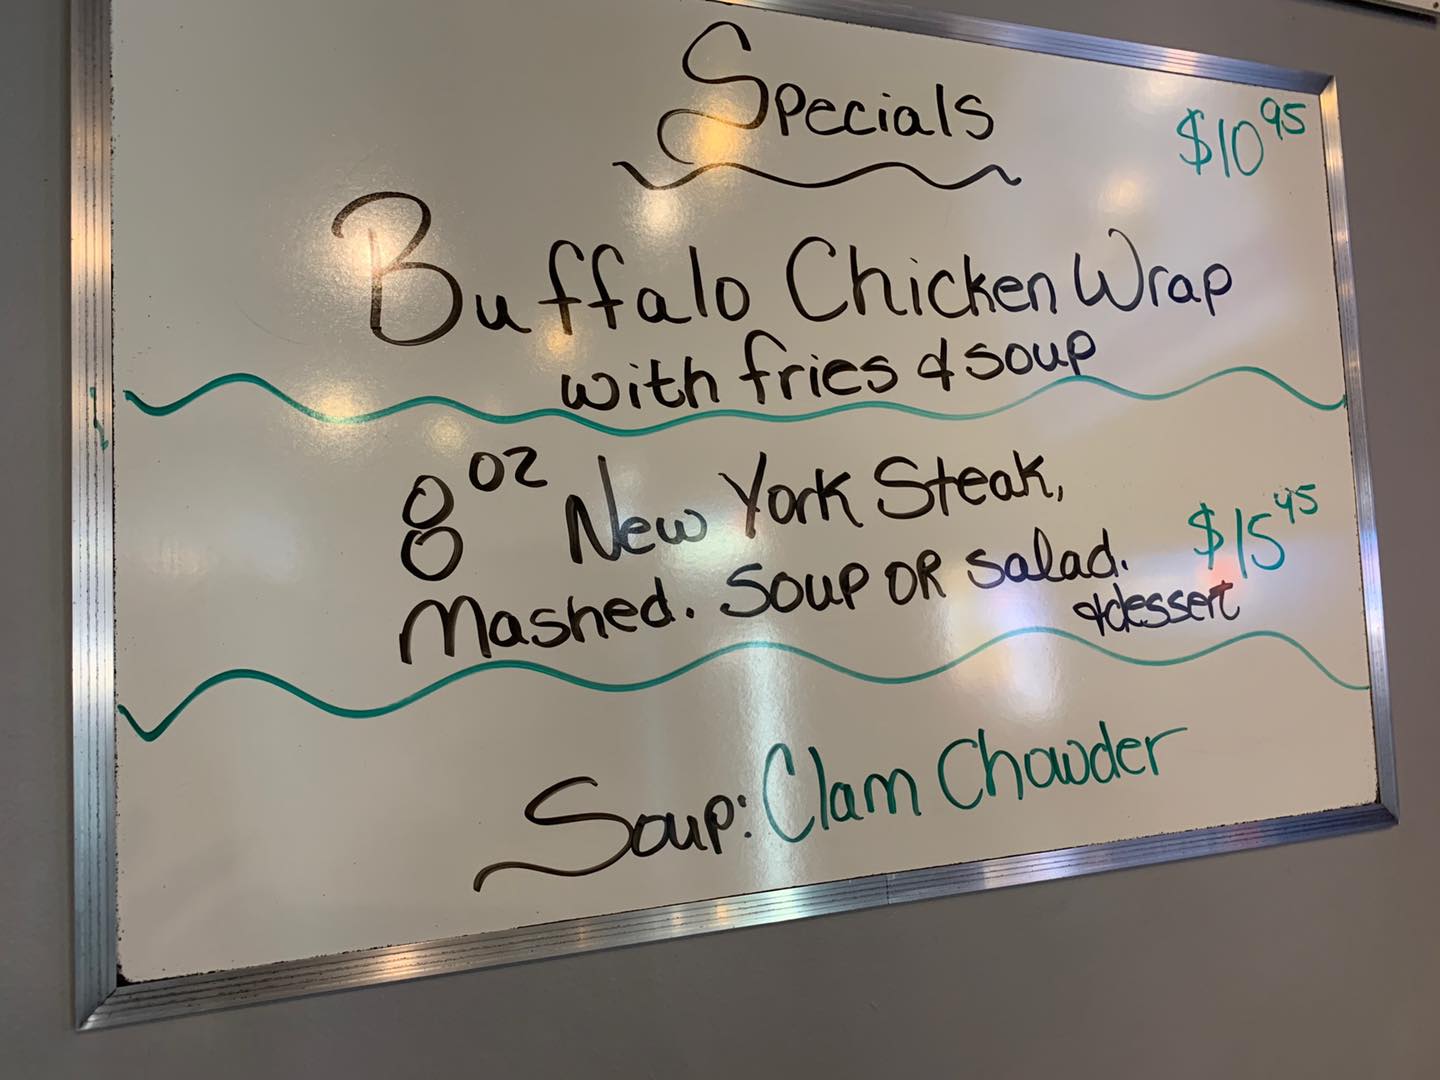 Specials
$10 95
Buffalo Chicken Wrap
with fries & soup
8 oz New York Steak,
$15 45
Mashed. Soup OR salad.
& dessert
Soup: Clam Chowder